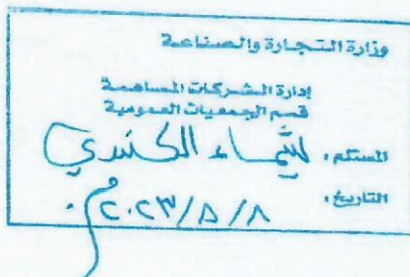 وزارة التجارة والصناعة
إدارة الشركات المساهمة
قسم الجمعيات العمومية
المستلم: شيماء الكندري
التاريخ: ٢٠٢٣/٥/٨